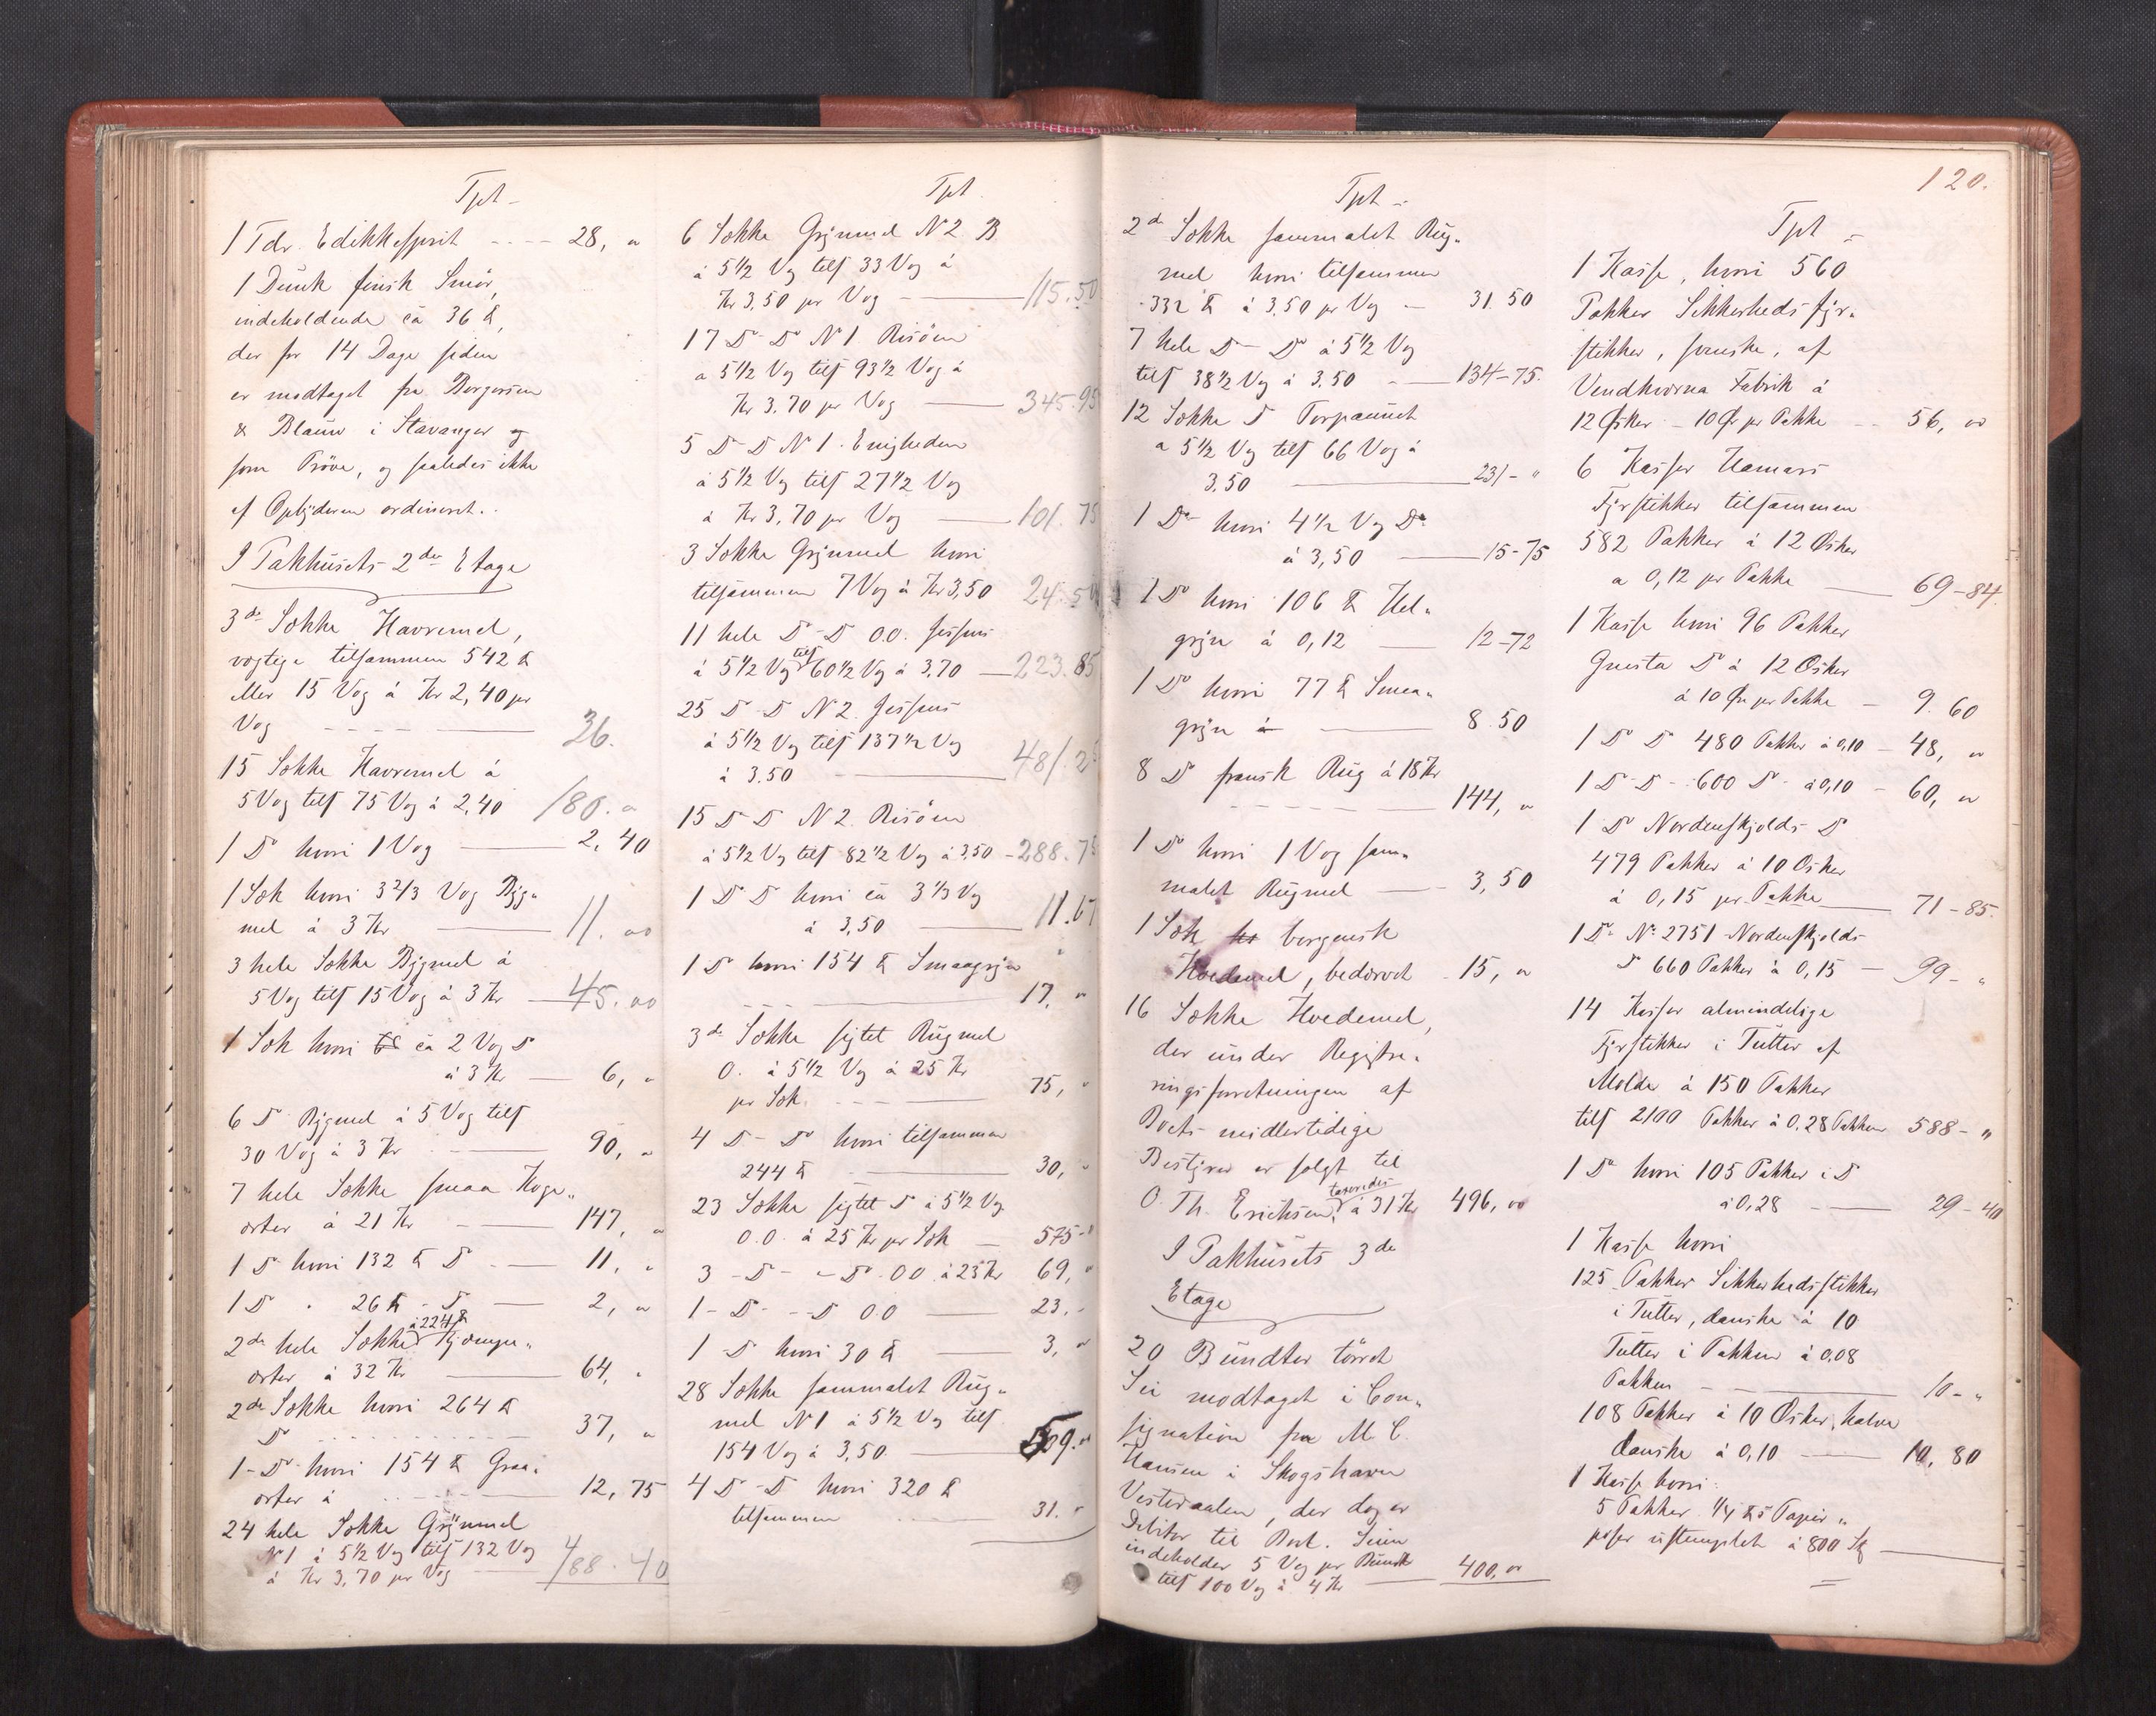 Tpt.
1 Tdr. Edikkesprit - - - - 28, "
1 Dunk finsk Smör,
indeholdende ca 36 ℔,
der for 14 Dage siden
er modtaget fra Borgersen
& Blauw i Stavanger og
som Pröve, og saaledes ikke
af Opbyderen ordineret.
I Pakhusets 2den Etage
3de Sække Havremel,
vægtige tilsammen 542 ℔
eller 15 Vog á Kr 2,40 pr
Vog - - - - 36.
15 Sække Havremel á
5 Vog tils 75 Vog á 2,40 180. "
1 Do hvori 1 Vog 2, 40
1 Sæk hvori 3 2/3 Vog Byg-
mel á 3 Kr 11. 00
3 hele Sække Bygmel á
5 Vog tils 15 Vog á 3 Kr 45. 00
1 Sæk hvori ca 2 Vog Do
á 3 Kr 6, "
6 Do Bygmel á 5 Vog tils
30 Vog á 3 Kr 90, "
7 hele Sække smaa Koge-
erter á 21 Kr 147, "
1 Do hvori 132 ℔ Do 11, "
1 Do " 26 ℔ - Do 2, "
á 224 ℔
2de hele Sække Kjæmpe-
erter á 32 Kr 64, "
2de Sække hvori 264 ℔
Do 37, "
1 - Do hvori 154 ℔ Graa-
erter á 12, 75
24 hele Sække Grynmel
N 1 á 5 1/2 Vog tils 132 Vog
á Kr 3,70 pr Vog 488. 40
Tpt.
6 Sække Grynmel N 2 B
á 5 1/2 Vog tils 33 Vog á
Kr 3,50 pr Vog 115. 50
17 Do - Do N 1 Risöen
a 5 1/2 Vog tils 93 1/2 Vog á
Kr 3,70 pr Vog 345. 95
5 Do - Do N 1. Enigheden
á 5 1/2 Vog tils 27 1/2 Vog
á Kr 3,70 pr Vog 101. 75
3 Sække Grynmel hvori
tilsammen 7 Vog á Kr 3,50 24. 50
11 hele Do - Do 00. Jessens
á 5 1/2 Vog tils 60 1/2 Vog á 3,70 223. 85
25 Do - Do N 2. Jessens
á 5 1/2 Vog tils 137 1/2 Vog
á 3.50 481. 25
15 Do Do N 2. Risöen
á 5 1/2 Vog tils 82 1/2 Vog á 3,50 - 288. 75
1 Do Do hvori ca 3 1/3 Vog
á 3,50 11. 67
1 Do hvori 154 ℔ Smaagryn
17, "
3de Sække sigtet Rugmel
0. á 5 1/2 Vog á 25 Kr
pr Sæk. 75, "
4 Do - Do hvori tilsammen
244 ℔ 30, "
23 Sække sigtet Do á 5 1/2 Vog
0.0. á 25 Kr pr Sæk 575 - "
3 - Do - - Do 00 á 23 Kr 69, "
1 - Do - - Do 00 23. -
1 Do hvori 30 ℔ 3, "
28 Sække sammalet Rug-
mel N 1 á 5 1/2 Vog tils
154 Vog á 3,50 539. "
4 Do - Do hvori 320 ℔
tilsammen 31. "
120.
Tpt.
2de Sække sammalet Rug-
mel hvori tilsammen
332 ℔ á 3,50 pr Vog 31. 50
7 hele Do - Do á 5 1/2 Vog
tils 38 1/2 Vog á 3.50 134 - 75.
12 Sække Do Torpaunet
a 5 1/2 Vog tils 66 Vog á
3,50 231 - "
1 Do hvori 4 1/2 Vog Do
á 3,50 15 - 75
1 Do hvori 106 ℔ Hel-
gryn á 0,12 12 - 72
1 Do hvori 77 ℔ Smaa-
gryn á 8. 50
8 Do fransk Rug á 18 Kr
144, "
1 Do hvori 1 Vog sam-
malet Rugmel 3, 50
1 Sæk bergensk
Hvedemel, bedærvet 15, "
16 Sække Hvedemel,
der under Registre-
ringsforretningen af
Boets midlertidige
Bestyrer er solgt til
taxeredes
O. Th. Erichsen, á 31 Kr 496, 00
I Pakhusets 3de
Etage
20 Bundter törret
Sei modtaget i Con-
signation fra M. C.
Hansen i Skogshavn
Vesteraalen, der dog er
Debitor til Boet. Seien
indeholder 5 Vog pr Bundt
tils 100 Vog á 4 Kr 400, 00
Tpt.
1 Kasse, hvori 560
Pakker Sikkerheds fyr-
stikker, svenske, af
Vendkværna Fabrik á
12 Æsker - 10 Ör pr Pakke 56, 00
6 Kasser Hamars
Fyrstikker tilsammen
582 Pakker á 12 Æsker
a 0,12 pr Pakke 69 - 84.
1 Kasse hvori 96 Pakker
Gnesta Do á 12 Æsker
á 10 Ör pr Pakke 9. 60
1 Do Do 480 Pakker á 0,10 - 48, "
1 Do - Do - 600 Do - á 0,10 - 60, "
1 Do Nordenskjolds Do
479 Pakker á 10 Æsker
á 0,15 pr. Pakke 71 - 85.
1 Do No 2751 Nordenskjolds
Do 660 Pakker á 0,15 99 - "
14 Kasser almindelige
Fyrstikker i Tutter af
Molde á 150 Pakker
tils 2100 Pakker á 0.28 Pakken 588 - "
1 Do hvori 105 Pakker i Do
á 0,28 29 - 40
1 Kasse hvori
125 Pakker Sikkerhedsstikker
i Tutter, danske á 10
Tutter i Pakken á 0,08
Pakken 10 - "
108 Pakker á 10 Æsker, halve
danske á 0,10 10, 80
1 Kasse hvori
5 Pakker 1/4 ℔s Papir-
poser ustemplet á 800 Stk